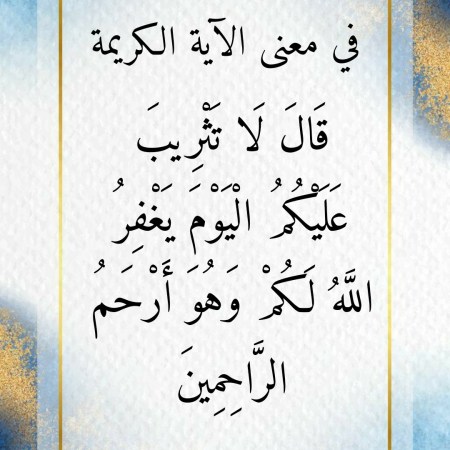 في معنى الآية الكريمة
قَالَ لَا تَثْرِيبَ
عَلَيْكُمُ الْيَوْمَ يَغْفِرُ
اللَّهُ لَكُمْ وَهُوَ أَرْحَمُ
الرَّاحِمِينَ